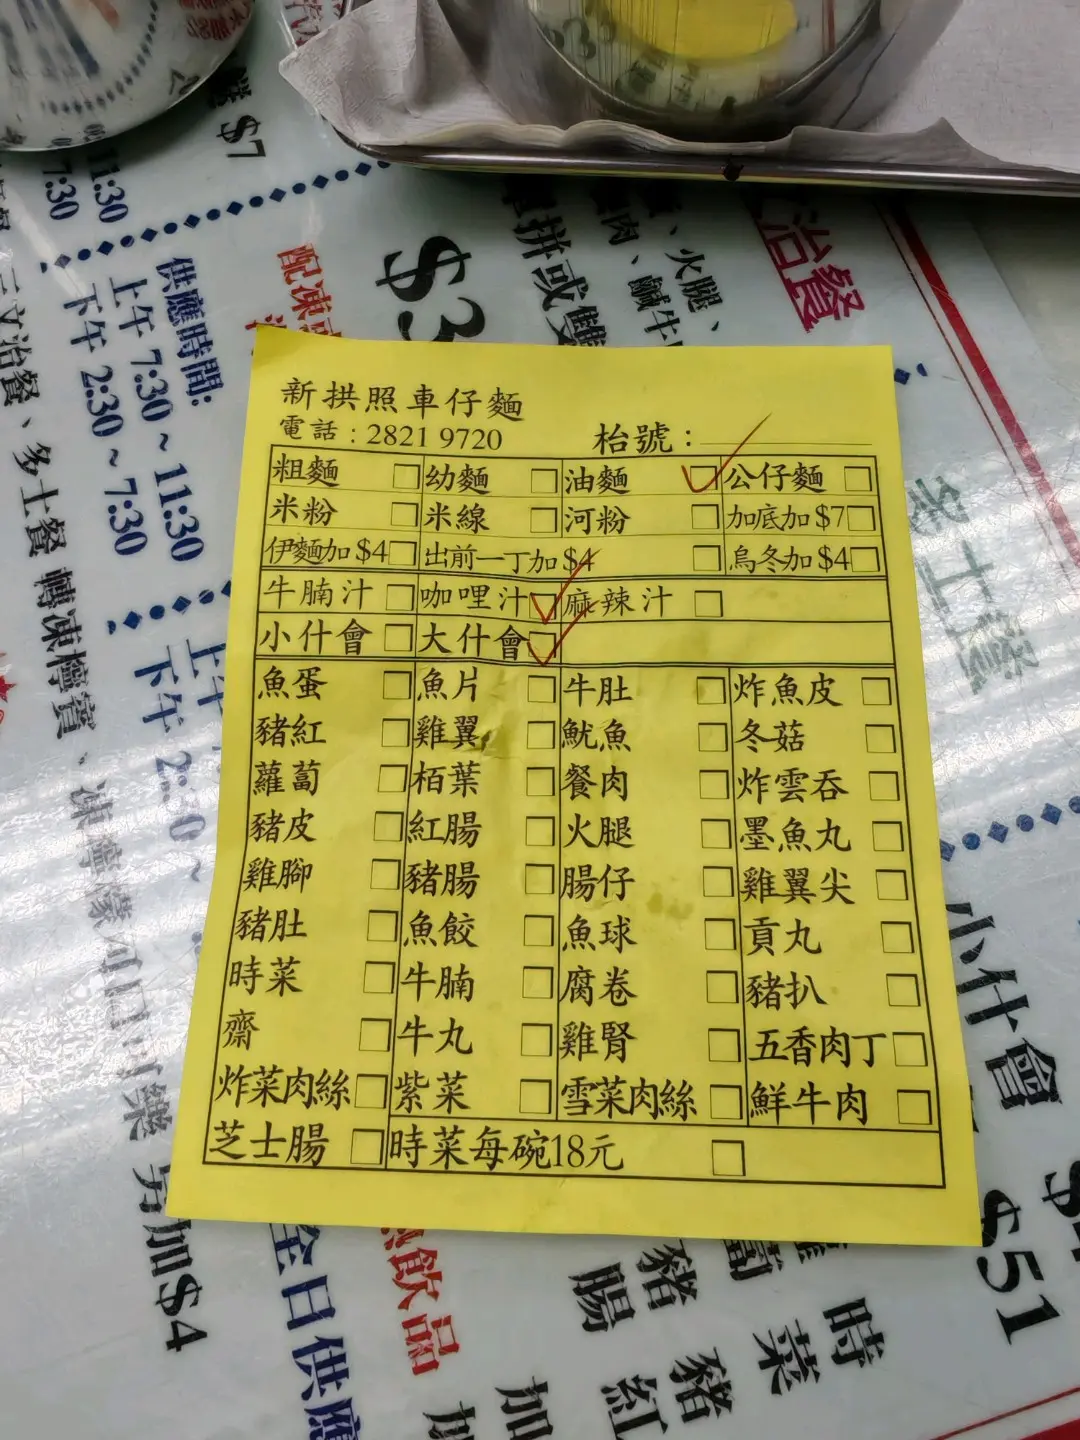 新拱照車仔麵
電話：2821 9720 枱號：
粗麵 幼麵 油麵 公仔麵
米粉 米線 河粉 加底加$7
伊麵加$4 出前一丁加$4 烏冬加$4
牛腩汁 咖哩汁 麻辣汁
小什會 大什會
魚蛋 魚片 牛肚 炸魚皮
豬紅 雞翼 魷魚 冬菇
蘿蔔 栢葉 餐肉 炸雲吞
豬皮 紅腸 火腿 墨魚丸
雞腳 豬腸 腸仔 雞翼尖
豬肚 魚餃 魚球 貢丸
時菜 牛腩 腐卷 豬扒
齋 牛丸 雞腎 五香肉丁
炸菜肉絲 紫菜 雪菜肉絲 鮮牛肉
芝士腸 時菜每碗18元
$7
11:30
7:30
供應時間:
上午 7:30 ~ 11:30
下午 2:30 ~ 7:30
配凍
$3
拼或雙
火腿、
肉、鹹牛
治餐
多士餐
文治餐、多士餐 轉凍檸賓、凍檸蒙
另加$4
全日供應
飲品
小什會
$51
豬腸
豬紅
時菜
加
加